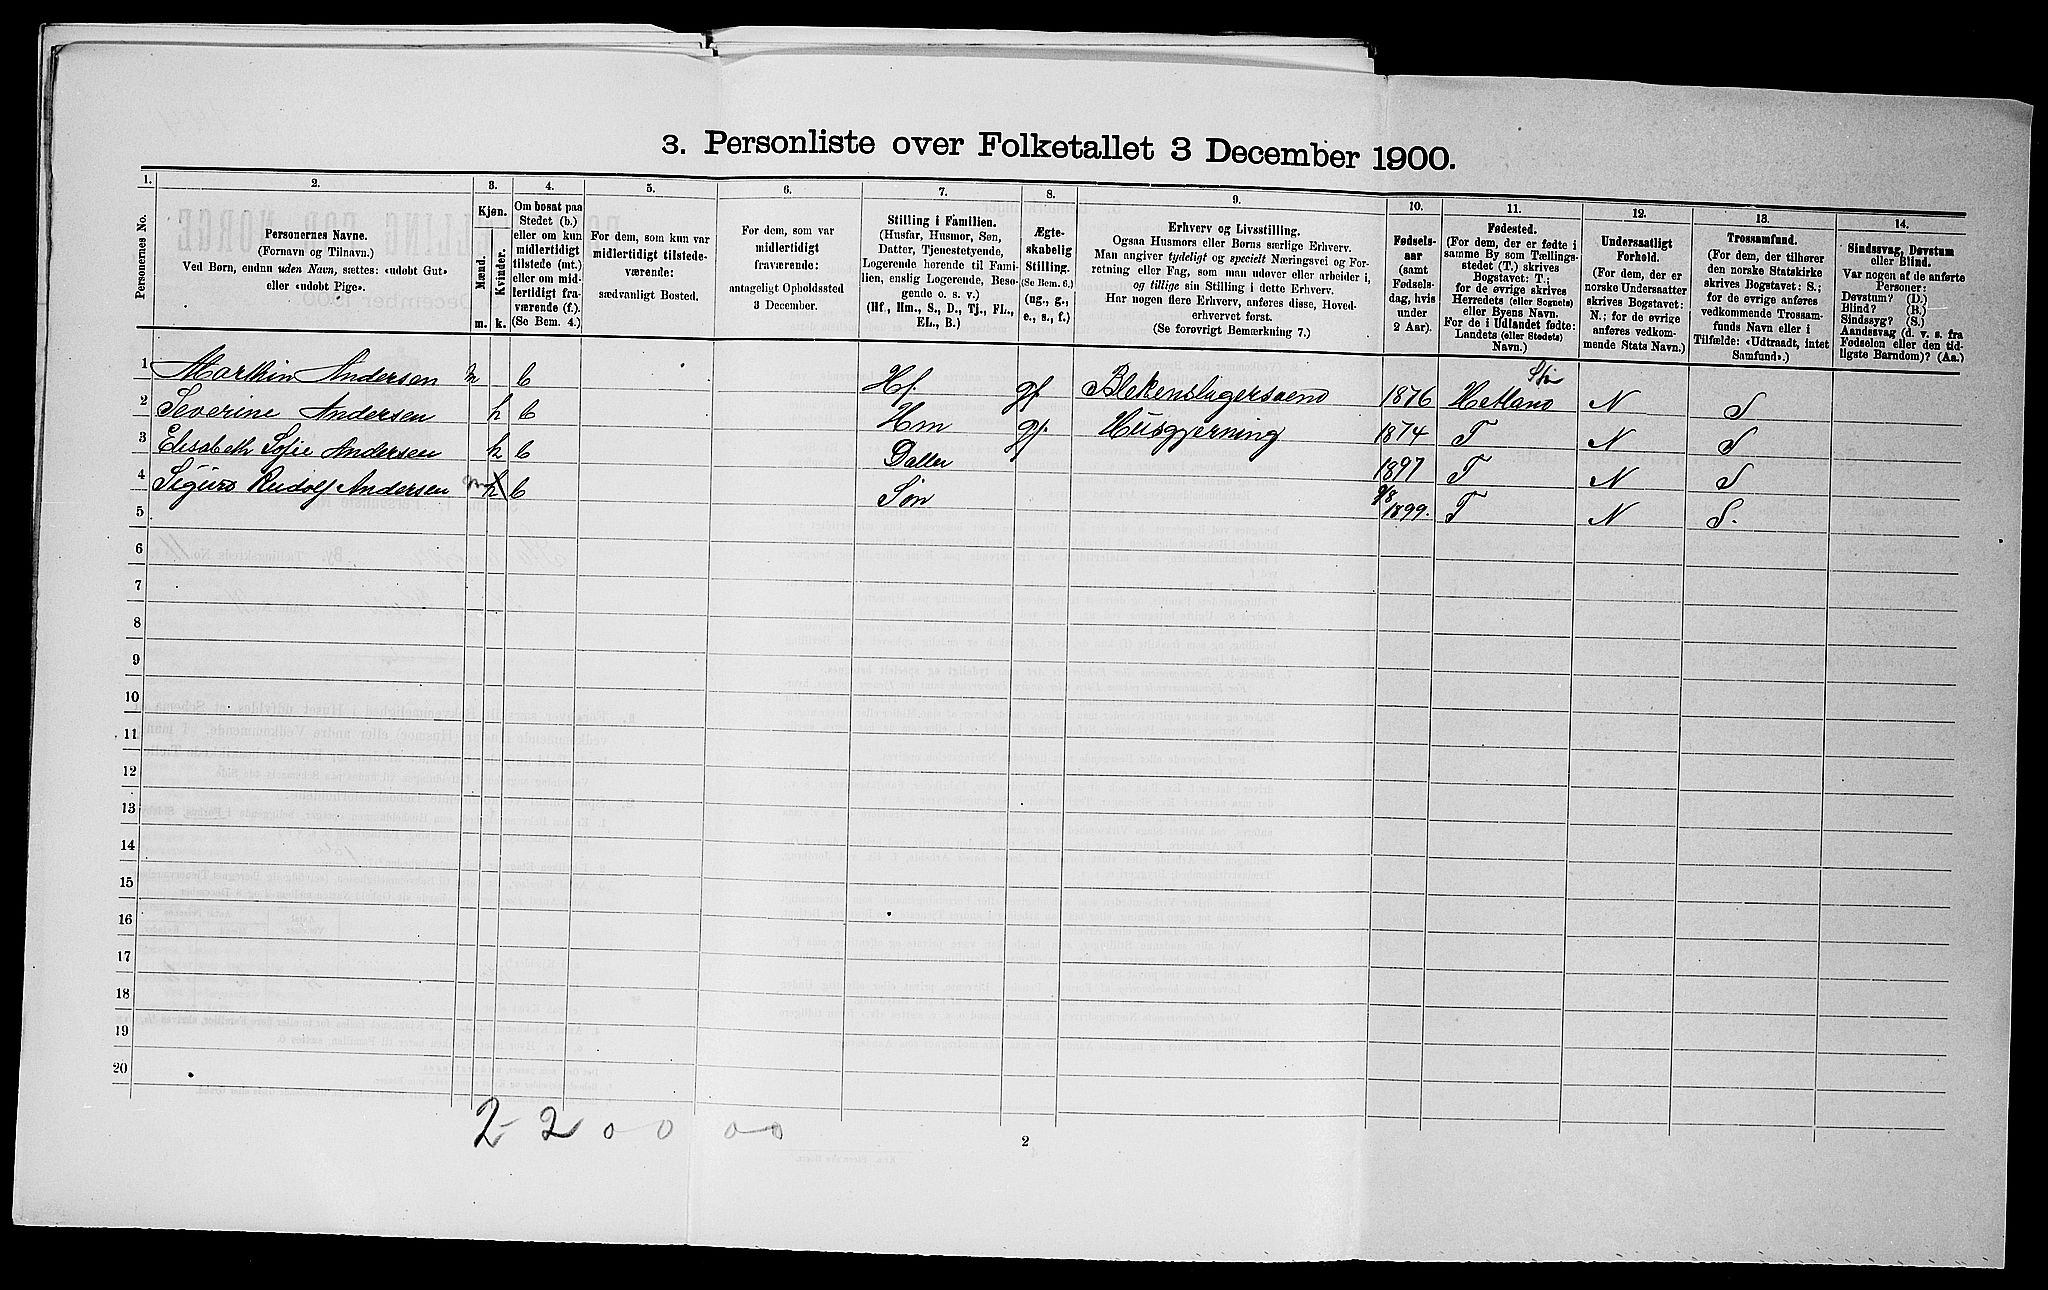 3. Personliste over Folketallet 3 December 1900.
1. 2. 3. 4. 5. 6. 7. 8. 9. 10. 11. 12. 13. 14.
Personernes No.
Personernes Navne.
(Fornavn og Tilnavn.)
Ved Børn, endnu uden Navn, sættes: «udøbt Gut»
eller «udøbt Pige».
Kjøn.
Mænd.
Kvinder.
m. k.
Om bosat paa
Stedet (b.)
eller om kun
midlertidigt
tilstede (mt.)
eller om mid-
lertidigt fra-
værende (f.).
(Se Bem. 4.)
For dem, som kun var
midlertidigt tilstede-
værende:
sædvanligt Bosted.
For dem, som var
midlertidigt
fraværende:
antageligt Opholdssted
3 December.
Stilling i Familien.
(Husfar, Husmor, Søn,
Datter, Tjenestetyende,
Logerende hørende til Fami-
lien, enslig Logerende, Besø-
gende o. s. v.)
(Hf., Hm., S., D., Tj., FL.,
EL., B.)
Ægte-
skabelig
Stilling.
(Se Bem. 6.)
(ug., g.,
e., s., f.)
Erhverv og Livsstilling.
Ogsaa Husmors eller Børns særlige Erhverv.
Man angiver tydeligt og specielt Næringsvei og For-
retning eller Fag, som man udøver eller arbeider i,
og tillige sin Stilling i dette Erhverv.
Har nogen flere Erhverv, anføres disse, Hoved-
erhvervet først.
(Se forøvrigt Bemærkning 7.)
Fødsels-
aar
(samt
Fødsels-
dag, hvis
under
2 Aar).
Fødested.
(For dem, der er fødte i
samme By som Tællings-
stedet (T.) skrives
Bogstavet: T.;
for de øvrige skrives
Herredets (eller Sognets)
eller Byens Navn.
For de i Udlandet fødte:
Landets (eller Stedets)
Navn.)
Undersaatligt
Forhold.
(For dem, der er
norske Undersaatter
skrives Bogstavet:
N.; for de øvrige
anføres vedkom-
mende Stats Navn.)
Trossamfund.
(For dem, der tilhører
den norske Statskirke
skrives Bogstavet: S.;
for de øvrige anføres
vedkommende Trossam-
funds Navn eller i
Tilfælde: «Udtraadt, intet
Samfund».)
Sindssvag, Døvstum
eller Blind.
Var nogen af de anførte
Personer:
Døvstum? (D.)
Blind? (B.)
Sindssyg? (S.)
Aandssvag (d. v. s. fra
Fødselen eller den tid-
ligste Barndom)? (Aa.)
1 Marthin Andersen m b Hf. gf Blekenslagersvend 1876 Hetland N S
2 Severine Andersen k b Hm gf. Husgjerning 1874 T N S
3 Elisabeth Sofie Andersen k b Datter 1897 T N S
4 Sigurd Rudolf Andersen m k b Søn 9/8 1899. T N S.
5
6
7
8
9
10
11
12
13
14
15
16
17
18
19
20
2 2 0 0 0 0
2